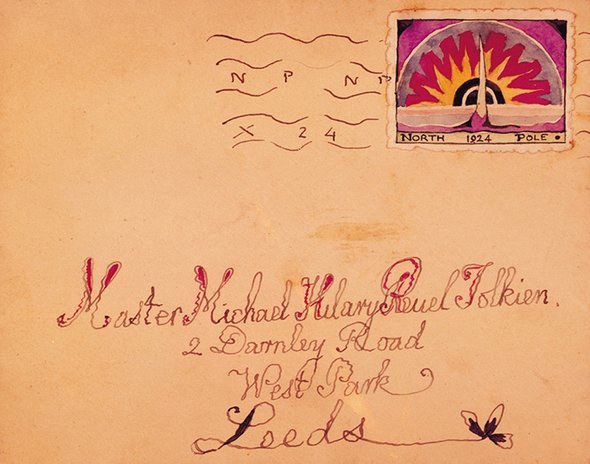 NORTH 1924 POLE
N P N P
X 24
Master Michael Hilary Reuel Tolkien.
2 Darnley Road
West Park
Leeds